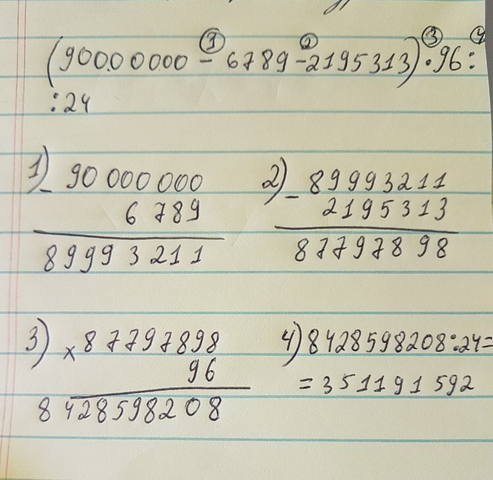 (90000000 - 6789 - 2195313) · 96 :
: 24
1) - 90 000000
6 789
89993211
2) - 89993211
2195313
87797898
3) × 87797898
96
8428598208
4) 8428598208:24=
= 351191592